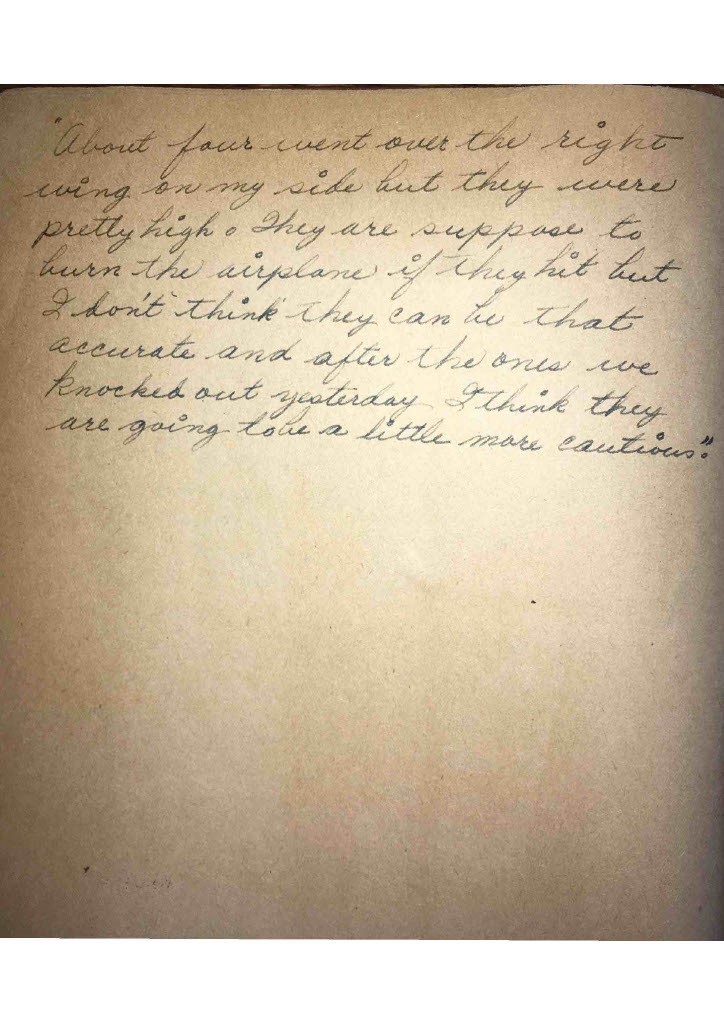 "About four went over the right
wing on my side but they were
pretty high. They are suppose to
burn the airplane if they hit but
I don't think they can be that
accurate and after the ones we
knocked out yesterday I think they
are going to be a little more cautious".